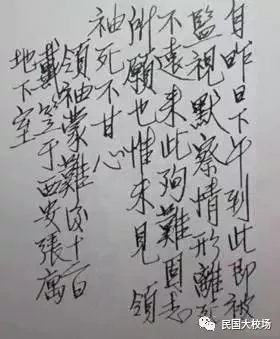 自昨日下午到此即被
監視默察情形離死
不遠来此殉難固志
所願也惟未見領
袖死不甘心
領袖蒙難後十二日
戴笠于西安張寓
地下室
民国大校场